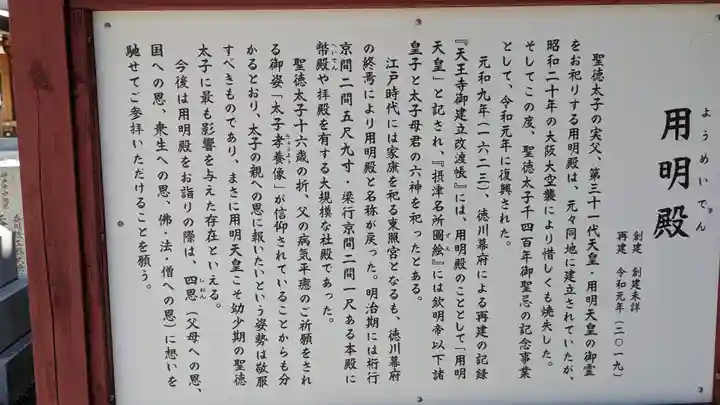 用明殿
ようめいでん
創建 創建未詳
再建 令和元年(二〇一九)
聖徳太子の実父、第三十一代天皇・用明天皇の御霊
をお祀りする用明殿は、元々同地に建立されていたが、
昭和二十年の大阪大空襲により惜しくも焼失した。
そしてこの度、聖徳太子千四百年御聖忌の記念事業
として、令和元年に復興された。
元和九年(一六二三)、徳川幕府による再建の記録
『天王寺御建立改渡帳』には、用明殿のこととして「用明
天皇」と記され、『摂津名所圖絵』には欽明帝以下諸
皇子と太子母君の六神を祀ったとある。
江戸時代には家康を祀る東照宮となるも、徳川幕府
の終焉により用明殿と名称が戻った。明治期には桁行
京間二間五尺九寸・梁行京間二間一尺ある本殿に
幣殿や拝殿を有する大規模な社殿であった。
聖徳太子十六歳の折、父の病気平癒のご祈願をされ
る御姿「太子孝養像」が信仰されていることからも分
かるとおり、太子の親への恩に報いたいという姿勢は敬服
すべきものであり、まさに用明天皇こそ幼少期の聖徳
太子に最も影響を与えた存在といえる。
今後は用明殿をお詣りの際は、四恩(父母への恩、
国への恩、衆生への恩、佛・法・僧への恩)に想いを
馳せてご参拝いただけることを願う。